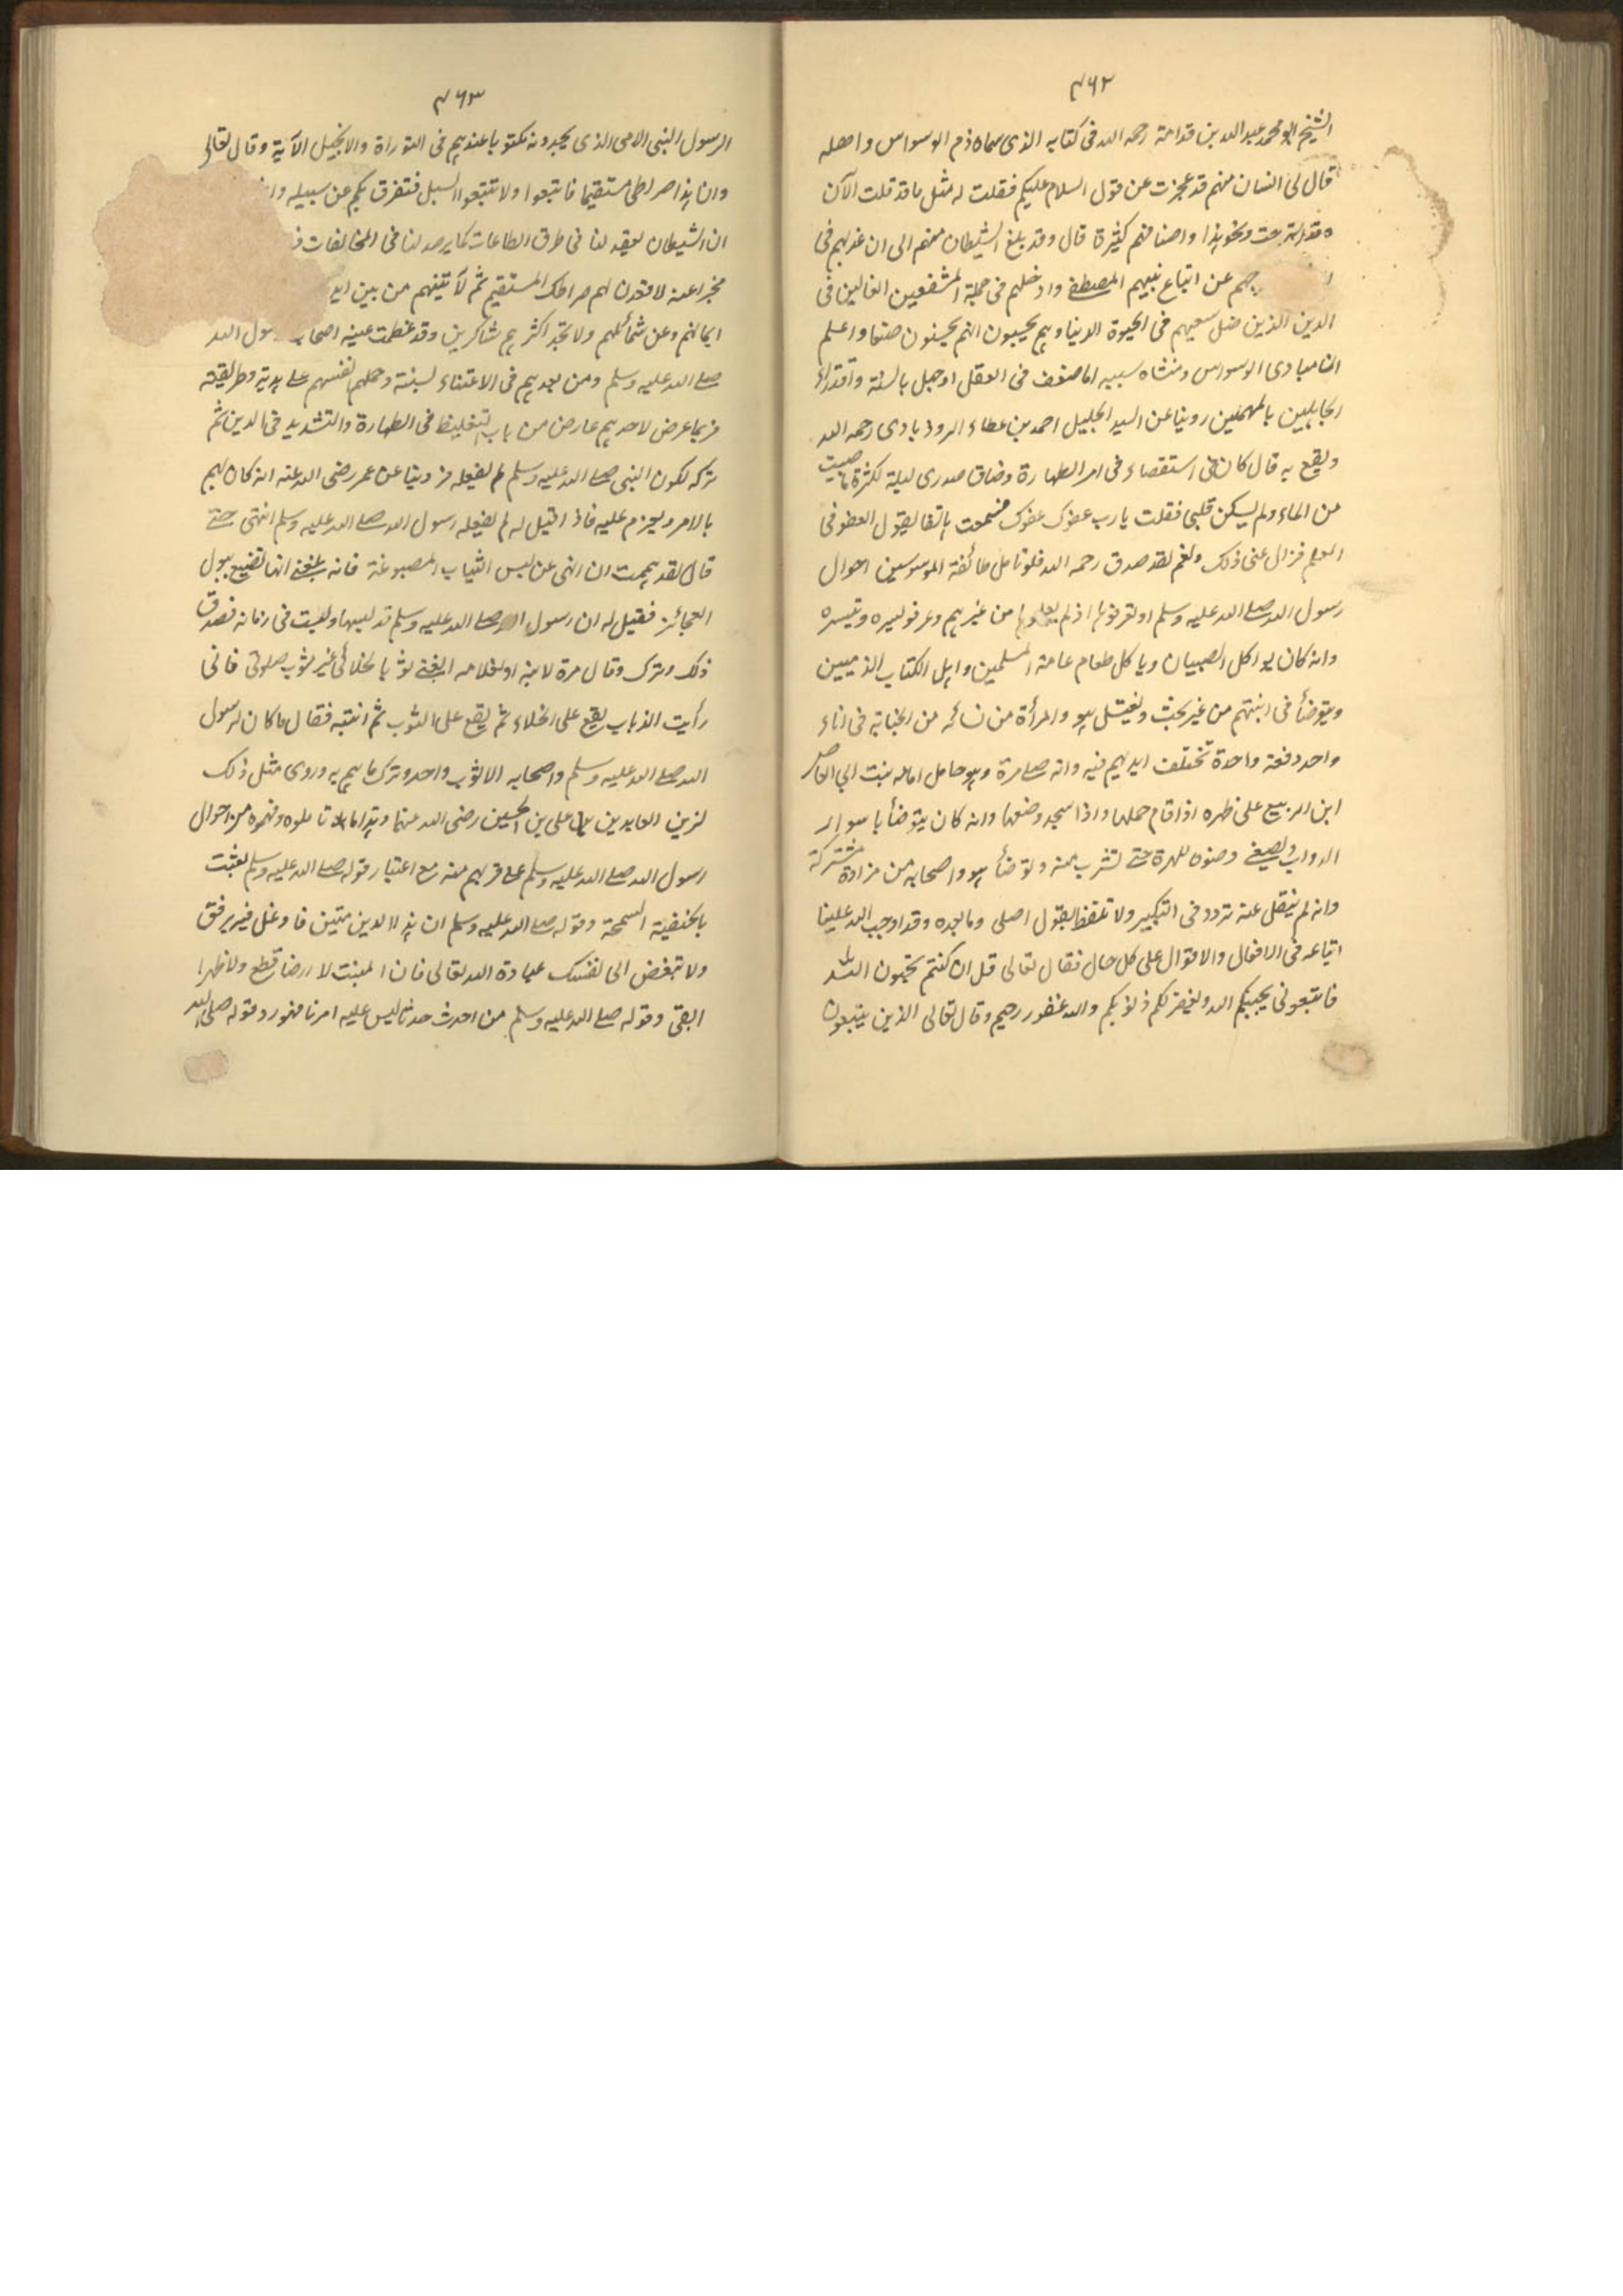 ٤٦٢
الشيخ ابو محمد عبد الله بن قدامة رحمه الله فى كتابه الذى سماه ذم الوسواس واهله
قال لى انسان منهم قد عجزت عن قول السلام عليكم فقلت له مثل ما قد قلت الآن
وقد استرحت ونحو هذا واصنافهم كثيرة قال وقد بلغ الشيطان منهم الى ان عذبهم فى
جهم عن اتباع نبيهم المصطفى وادخلهم فى جملة المتنطعين الغالين فى
الدين الذين ضل سعيهم فى الحيوة الدنيا وهم يحسبون انهم يحسنون صنعا واعلم
ان مبادى الوسواس ومنشاه سببه اما ضعف فى العقل او جهل بالسنة واقتداء
الجاهلين بالمهملين روينا عن السيد الجليل احمد بن عطاء الروذبادى رحمه الله
ونفع به قال كان لى استقصاء فى امر الطهارة وضاق صدرى ليلة لكثرة ما صببت
من الماء ولم يسكن قلبى فقلت يا رب عفوك عفوك فسمعت هاتفا يقول العفو فى
العلم فزال عنى ذلك ونعم لقد صدق رحمه الله فلو تامل طائفة الموسوسين احوال
رسول الله صلى الله عليه وسلم او تعرفوها اذ لم يعلموها من غيرهم وعرفو سيره وتيسره
وانه كان يواكل الصبيان وياكل طعام عامة المسلمين واهل الكتاب الذميين
ويتوضأ فى ابنتهم من غير بحث ويغتسل هو والمرأة من نسائه من الجنابة فى اناء
واحد دفعة واحدة تختلف ايديهم فيه وانه صلى مرة وهو حامل امامه بنت ابى العاص
ابن الربيع على ظهره اذا قام حملها واذا سجد وضعها وانه كان يتوضأ باسوار
الدواب ويصغى وضوه للهرة حتى تشرب منه وتوضأ هو واصحابه من مزادة مشتركة
وانه لم ينقل عنه تردد فى التكبير ولا تلفظ بقول اصلى وما بعده وقد اوجب الله علينا
اتباعه فى الافعال والاقوال على كل حال فقال تعالى قل ان كنتم تحبون الله
فاتبعونى يحببكم الله ويغفر لكم ذنوبكم والله غفور رحيم وقال تعالى الذين يتبعون
٤٦٣
الرسول النبى الامى الذى يجدونه مكتوبا عندهم فى التوراة والانجيل الآية وقال تعالى
وان هذا صراطى مستقيما فاتبعوا ولا تتبعوا السبل فتفرق بكم عن سبيله
ان الشيطان ليقعد لنا فى طرق الطاعات كما يرصد لنا فى المخالفات
مخبرا عنه لاقعدن لهم صراطك المستقيم ثم لآتينهم من بين
ايمانهم وعن شمائلهم ولا تجد اكثرهم شاكرين وقد عظمت عينه اصحاب رسول الله
صلى الله عليه وسلم ومن بعدهم فى الاعتناء لسنته وحملهم انفسهم على هديه وطريقته
فربما عرض لاحدهم عارض من باب التغليظ فى الطهارة والتشديد فى الدين ثم
تركه لكون النبى صلى الله عليه وسلم لم يفعله فروينا عن عمر رضى الله عنه انه كان يهم
بالامر ويعزم عليه فاذا قيل له لم يفعله رسول الله صلى الله عليه وسلم انتهى حتى
قال لقد هممت ان انهى عن لبس الثياب المصبوغة فانه بلغنى انها تصبغ ببول
العجائز فقيل له ان رسول الله صلى الله عليه وسلم قد لبسها ولبست فى زمانه فصدق
ذلك وترك وقال مرة لابنه او لغلامه ابغنى ثوبا لخلائى غير ثوب صلوتى فانى
رأيت الذباب يقع على الخلاء ثم يقع على الثوب ثم انتبه فقال ما كان لرسول
الله صلى الله عليه وسلم واصحابه الا ثوب واحد وترك ما هم به وروى مثل ذلك
لزين العابدين على بن الحسين رضى الله عنهما وهذا ما تاملوه وفهموه من احوال
رسول الله صلى الله عليه وسلم على قربهم منه مع اعتبار قوله صلى الله عليه وسلم بعثت
بالحنفية السمحة وقوله صلى الله عليه وسلم ان هذا الدين متين فاوغل فيه برفق
ولا تبغض الى نفسك عبادة الله تعالى فان المنبت لا ارضا قطع ولا ظهرا
ابقى وقوله صلى الله عليه وسلم من احدث حدثا ليس عليه امرنا فهو رد وقوله صلى الله